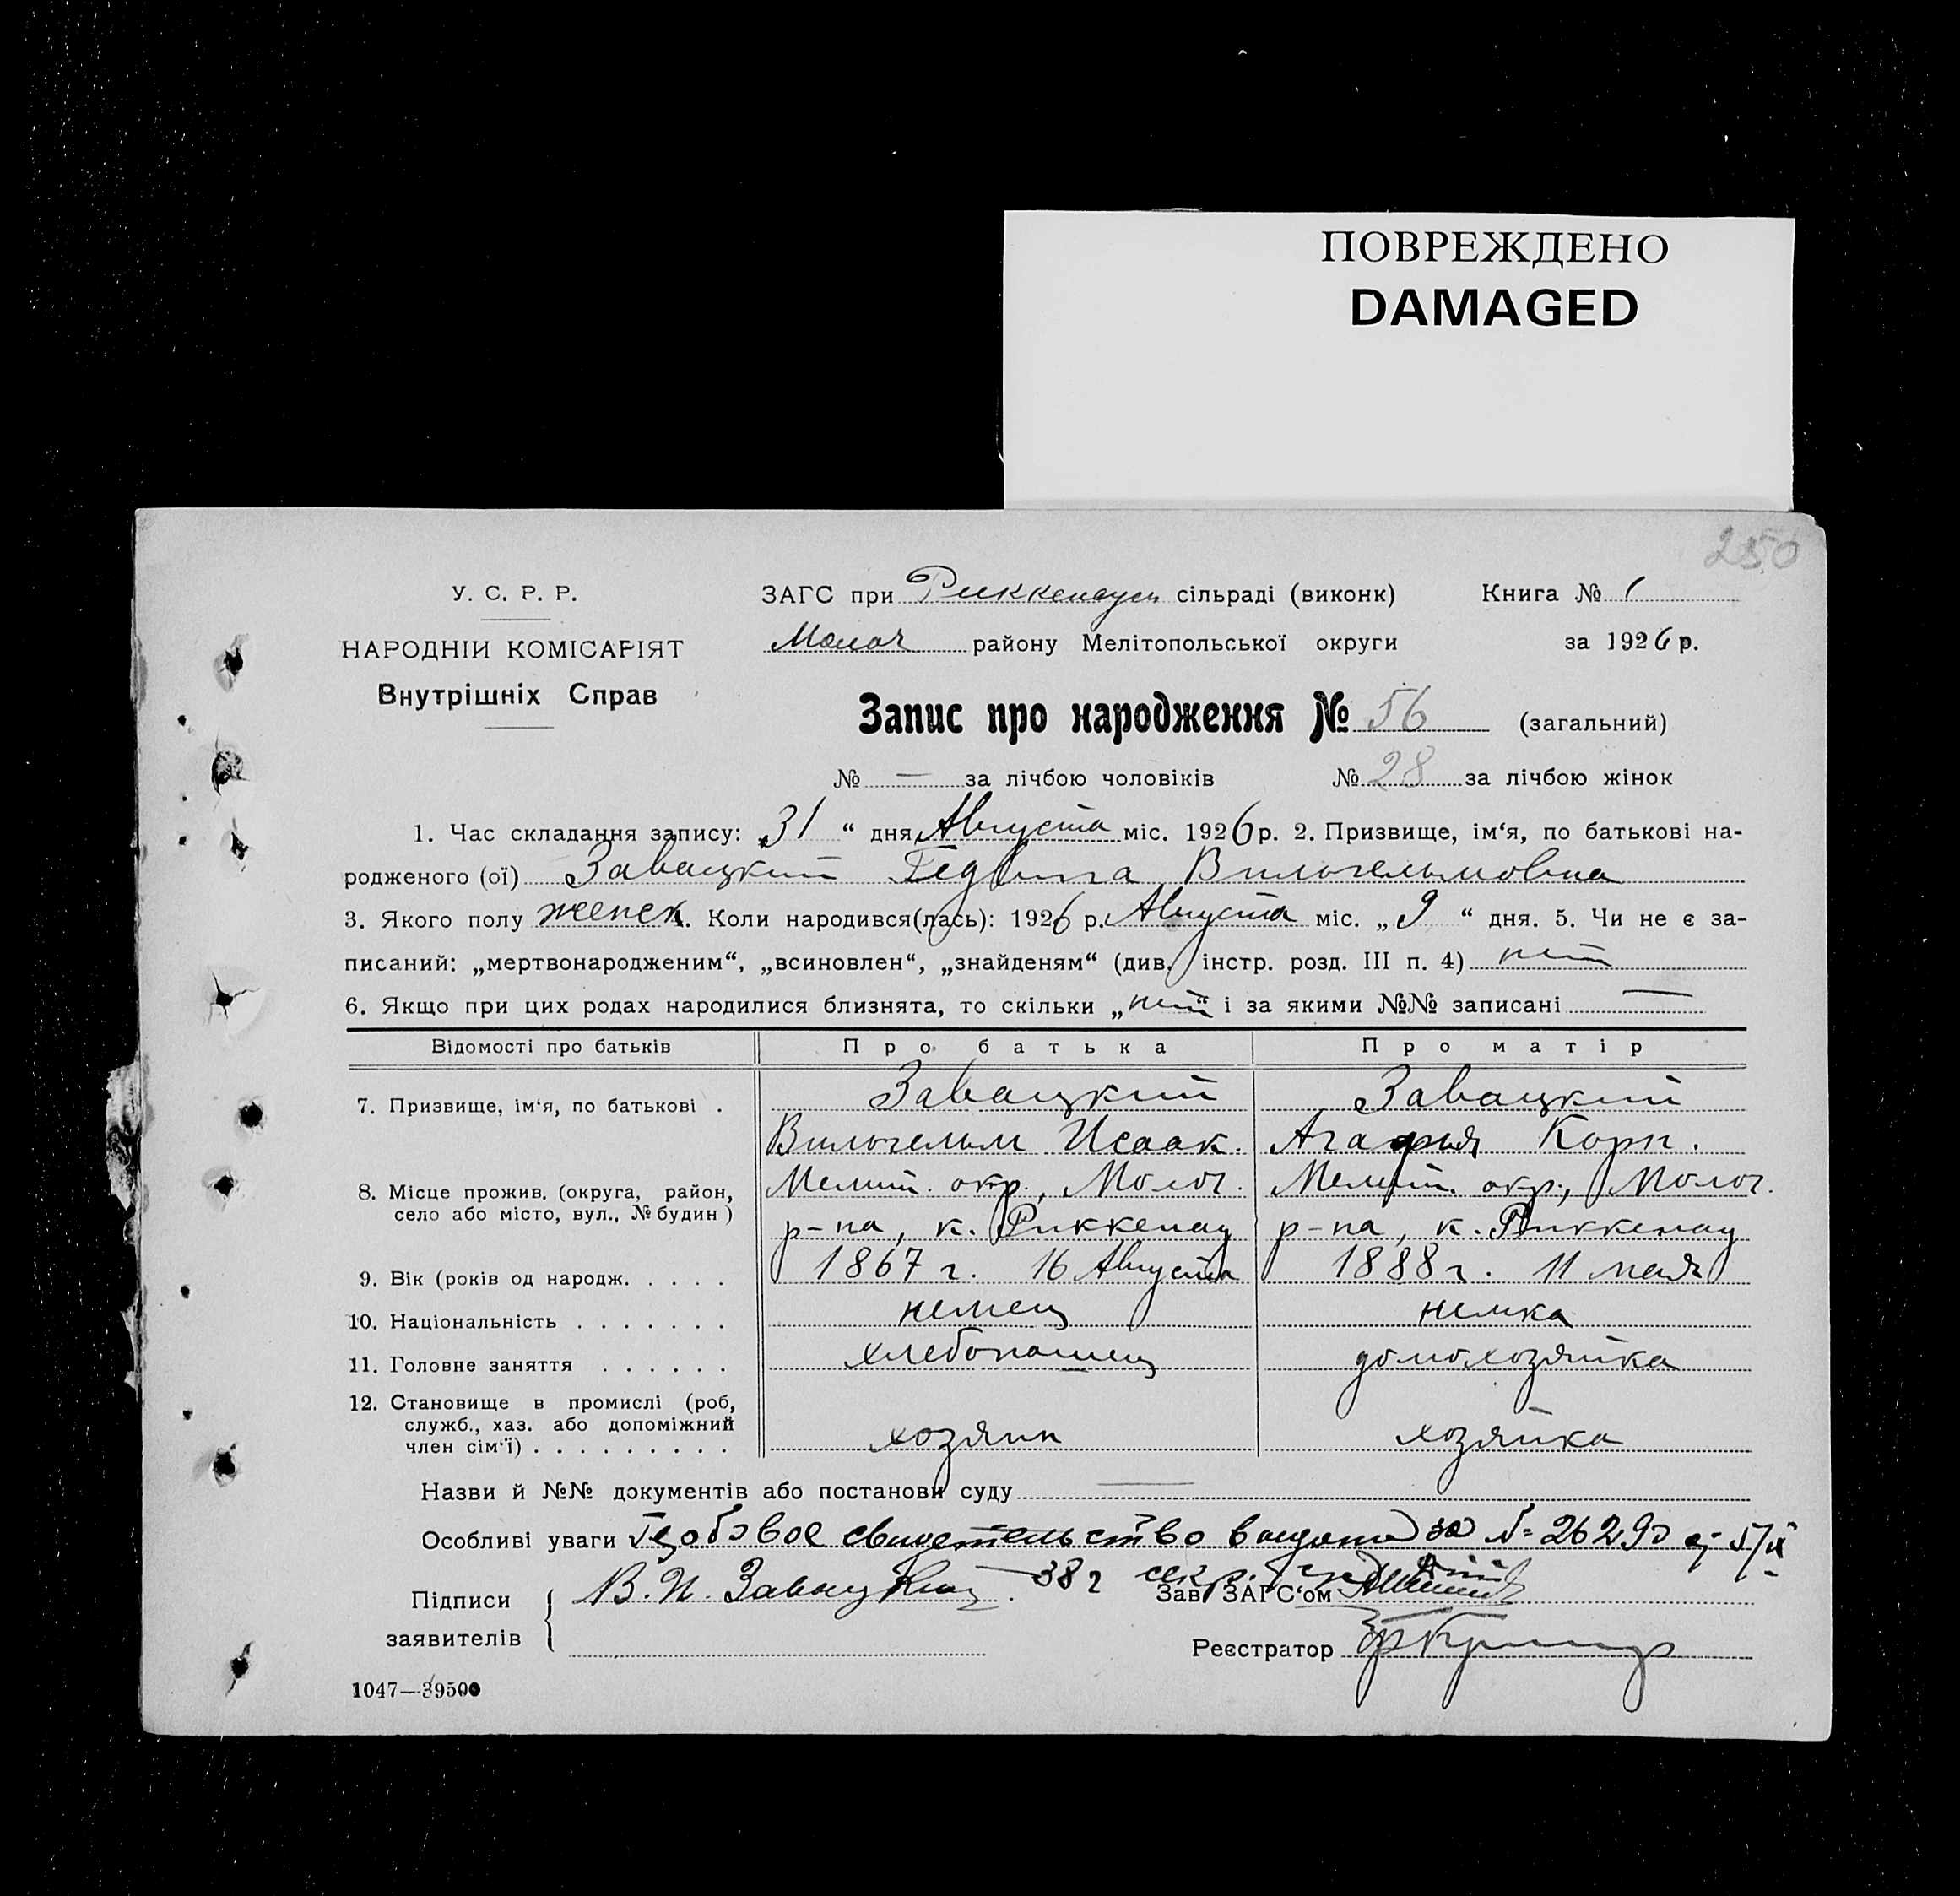 ПОВРЕЖДЕНО
DAMAGED
250
У. С. Р. Р.
НАРОДНІЙ КОМІСАРІЯТ
Внутрішніх Справ
ЗАГС при Риккенауск сільраді (виконк) Книга № 1
Молоч району Мелітопольської округи за 1926 р.
Запис про народження № 56 (загальний)
№ — за лічбою чоловіків № 28 за лічбою жінок
1. Час складання запису: „31“ дня Августа міс. 1926 р. 2. Призвище, ім‘я, по батькові на-
родженого (ої) Завацкий Гедвига Вильгельмовна
3. Якого полу женск. Коли народився(лась): 1926 р. Августа міс. „9“ дня. 5. Чи не є за-
писаний: „мертвонародженим“, „всиновлен“, „знайденям“ (див. інстр. розд. III п. 4) нет
6. Якщо при цих родах народилися близнята, то скільки „нет“ і за якими №№ записані —
Відомості про батьків Про батька Про матір
7. Призвище, ім‘я, по батькові . Завацкий Завацкий
Вильгельм Исаак. Агафия Корн.
8. Місце прожив. (округа, район, Мелит. окр., Молоч. Мелит. окр., Молоч.
село або місто, вул., № будин) р-на, к. Риккенау р-на, к. Риккенау
9. Вік (років од народж. . . . . 1867 г. 16 Августа 1888 г. 11 мая
10. Національність . . . . . . . немец немка
11. Головне заняття . . . . . . хлебопашец домохозяйка
12. Становище в промислі (роб,
служб., хаз. або допоміжний
член сім‘ї) . . . . . . . . . хозяин хозяйка
Назви й №№ документів або постанови суду —
Особливі уваги свидетельство выдано за № 26290
38 г секр.
Підписи В. И. Завацкий Зав. ЗАГС‘ом
заявителів Реєстратор
1047—39500